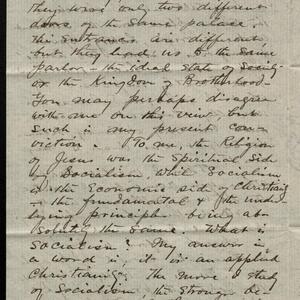 they was only two different
doors of the same palace.
The entrances are different
but they lead us to the same
parlor - the ideal state of Society
or the Kingdom of Brotherhood -
You may perhaps disagree
with me on this view, but
such is my present con-
viction. To me, the Religion
of Jesus was the Spiritual Side
of Socialism while Socialism
is the Economic side of Christianity
- the fundamental & the under
lying principle being ab-
solutely the same. What is
Socialism? My answer in
a word is, it is an applied
Christianity. The more I study
of Socialism the stronger be-